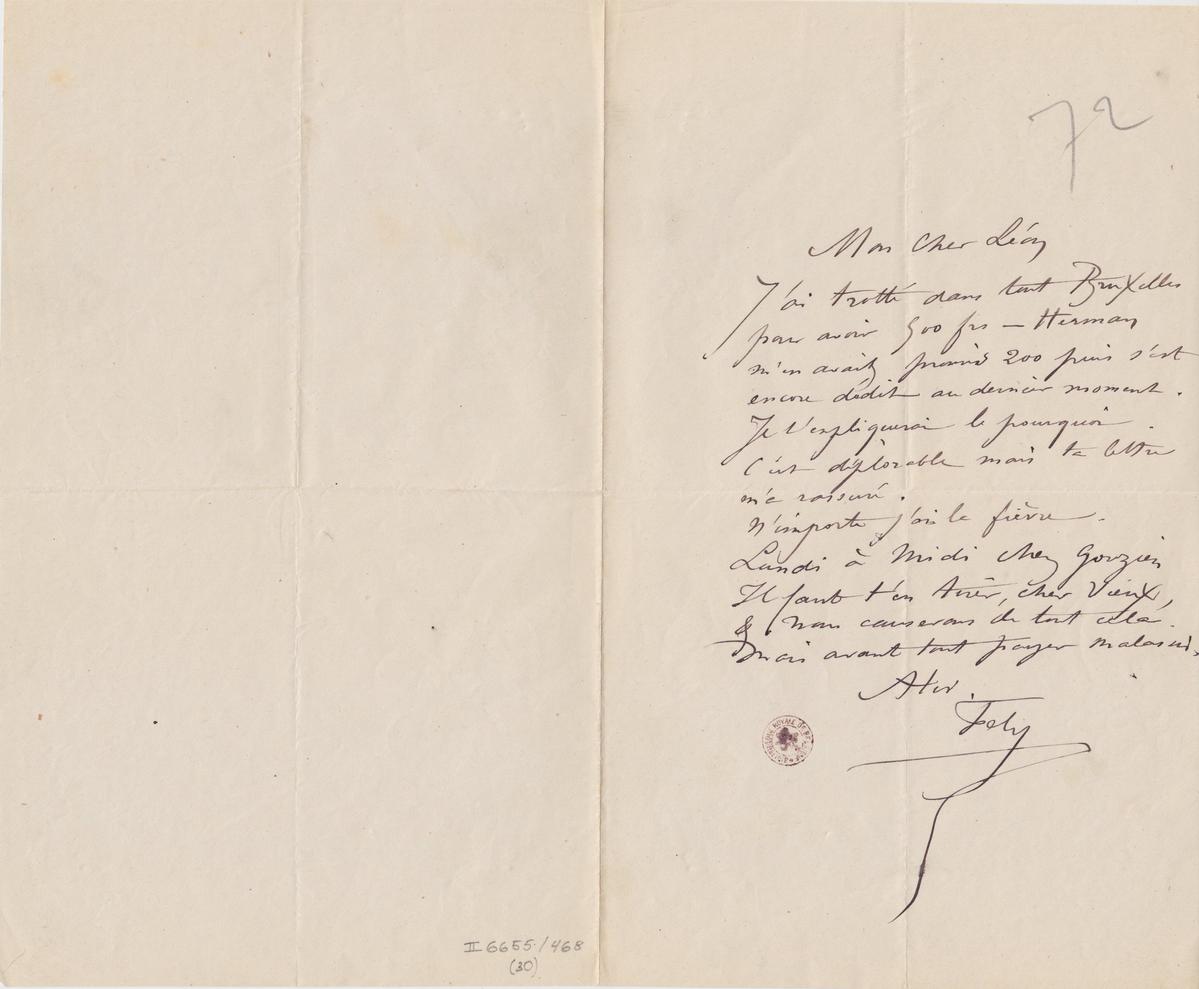 72
Mon Cher Léon
J'ai trotté dans tout Bruxelles
pour avoir 500 frs — Herman
m'en avait promis 200 puis s'est
encore dédit au dernier moment.
Je t'expliquerai le pourquoi.
C'est déplorable mais ta lettre
m'a rassuré.
N'importe j'ai la fièvre.
Lundi à Midi chez Gouzien
Il faut t'en tirer, cher Vieux,
& nous causerons de tout cela.
Mais avant tout payer
A toi.
Fély
BIBLIOTHÈQUE ROYALE DE BELGIQUE
II 6655/468
(30)